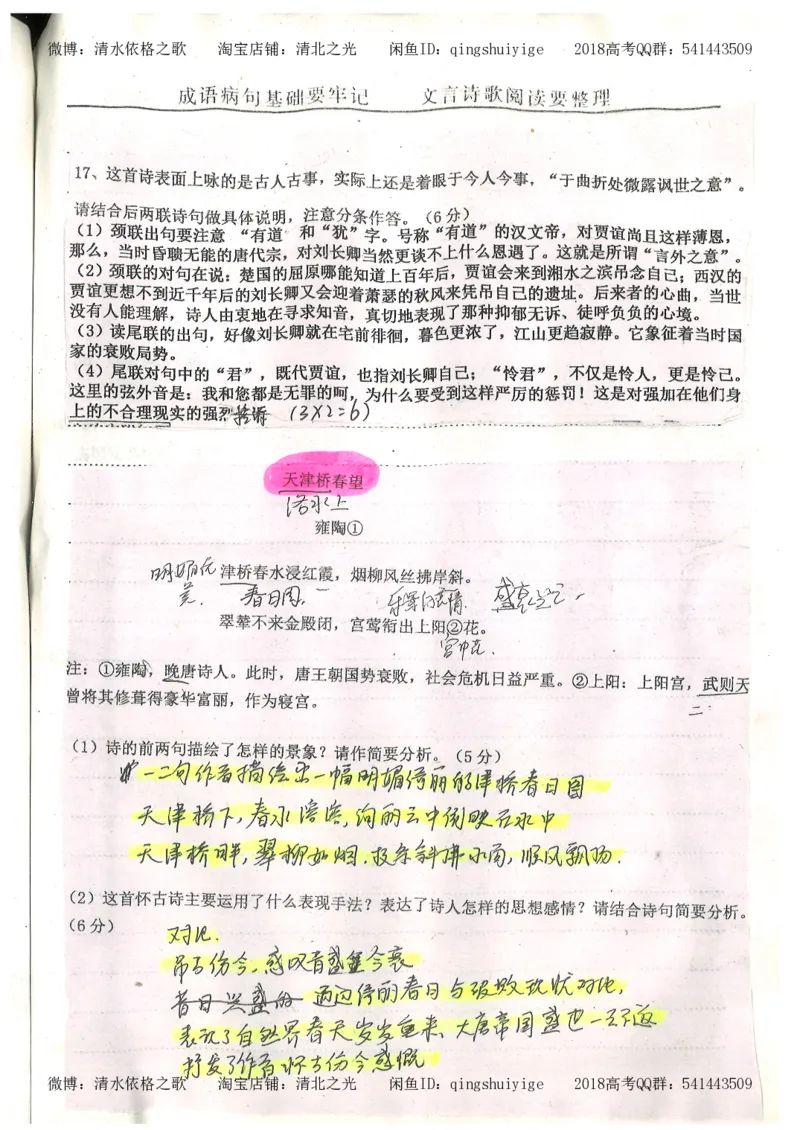 微博：清水依格之歌 淘宝店铺：清北之光 闲鱼ID：qingshuiyige 2018高考QQ群：541443509
成语病句基础要牢记 文言诗歌阅读要整理
17、这首诗表面上咏的是古人古事，实际上还是着眼于今人今事，“于曲折处微露讽世之意”。
请结合后两联诗句做具体说明，注意分条作答。（6分）
（1）颈联出句要注意“有道”和“犹”字。号称“有道”的汉文帝，对贾谊尚且这样薄恩，
那么，当时昏聩无能的唐代宗，对刘长卿当然更谈不上什么恩遇了。这就是所谓“言外之意”。
（2）颈联的对句在说：楚国的屈原哪能知道上百年后，贾谊会来到湘水之滨吊念自己；西汉的
贾谊更想不到近千年后的刘长卿又会迎着萧瑟的秋风来凭吊自己的遗址。后来者的心曲，当世
没有人能理解，诗人由衷地在寻求知音，真切地表现了那种抑郁无诉、徒呼负负的心境。
（3）读尾联的出句，好像刘长卿就在宅前徘徊，暮色更浓了，江山更趋寂静。它象征着当时国
家的衰败局势。
（4）尾联对句中的“君”，既代贾谊，也指刘长卿自己；“怜君”，不仅是怜人，更是怜己。
这里的弦外音是：我和您都是无罪的呵，为什么要受到这样严厉的惩罚！这是对强加在他们身
上的不合理现实的强烈控诉 （3×2=6）
天津桥春望
洛水上
雍陶①
明媚优美 津桥春水浸红霞，烟柳风丝拂岸斜。
春日图
翠辇不来金殿闭，宫莺衔出上阳②花。
宫中花
注：①雍陶，晚唐诗人。此时，唐王朝国势衰败，社会危机日益严重。②上阳：上阳宫，武则天
曾将其修葺得豪华富丽，作为寝宫。
（1）诗的前两句描绘了怎样的景象？请作简要分析。（5分）
一二句作者描绘出一幅明媚绮丽的津桥春日图
天津桥下，春水溶溶，绚丽云中倒映石水中
天津桥畔，翠柳如烟，枝条斜拂水面，顺风飘扬．
（2）这首怀古诗主要运用了什么表现手法？表达了诗人怎样的思想感情？请结合诗句简要分析。
（6分）
对比．
吊古伤今，感叹昔盛今衰
昔日兴盛的 通过绮丽春日与破败现状对比，
表现了自然界春天岁岁重来，大唐帝国盛世一去不返
抒发了作者怀古伤今感慨
微博：清水依格之歌 淘宝店铺：清北之光 闲鱼ID：qingshuiyige 2018高考QQ群：541443509